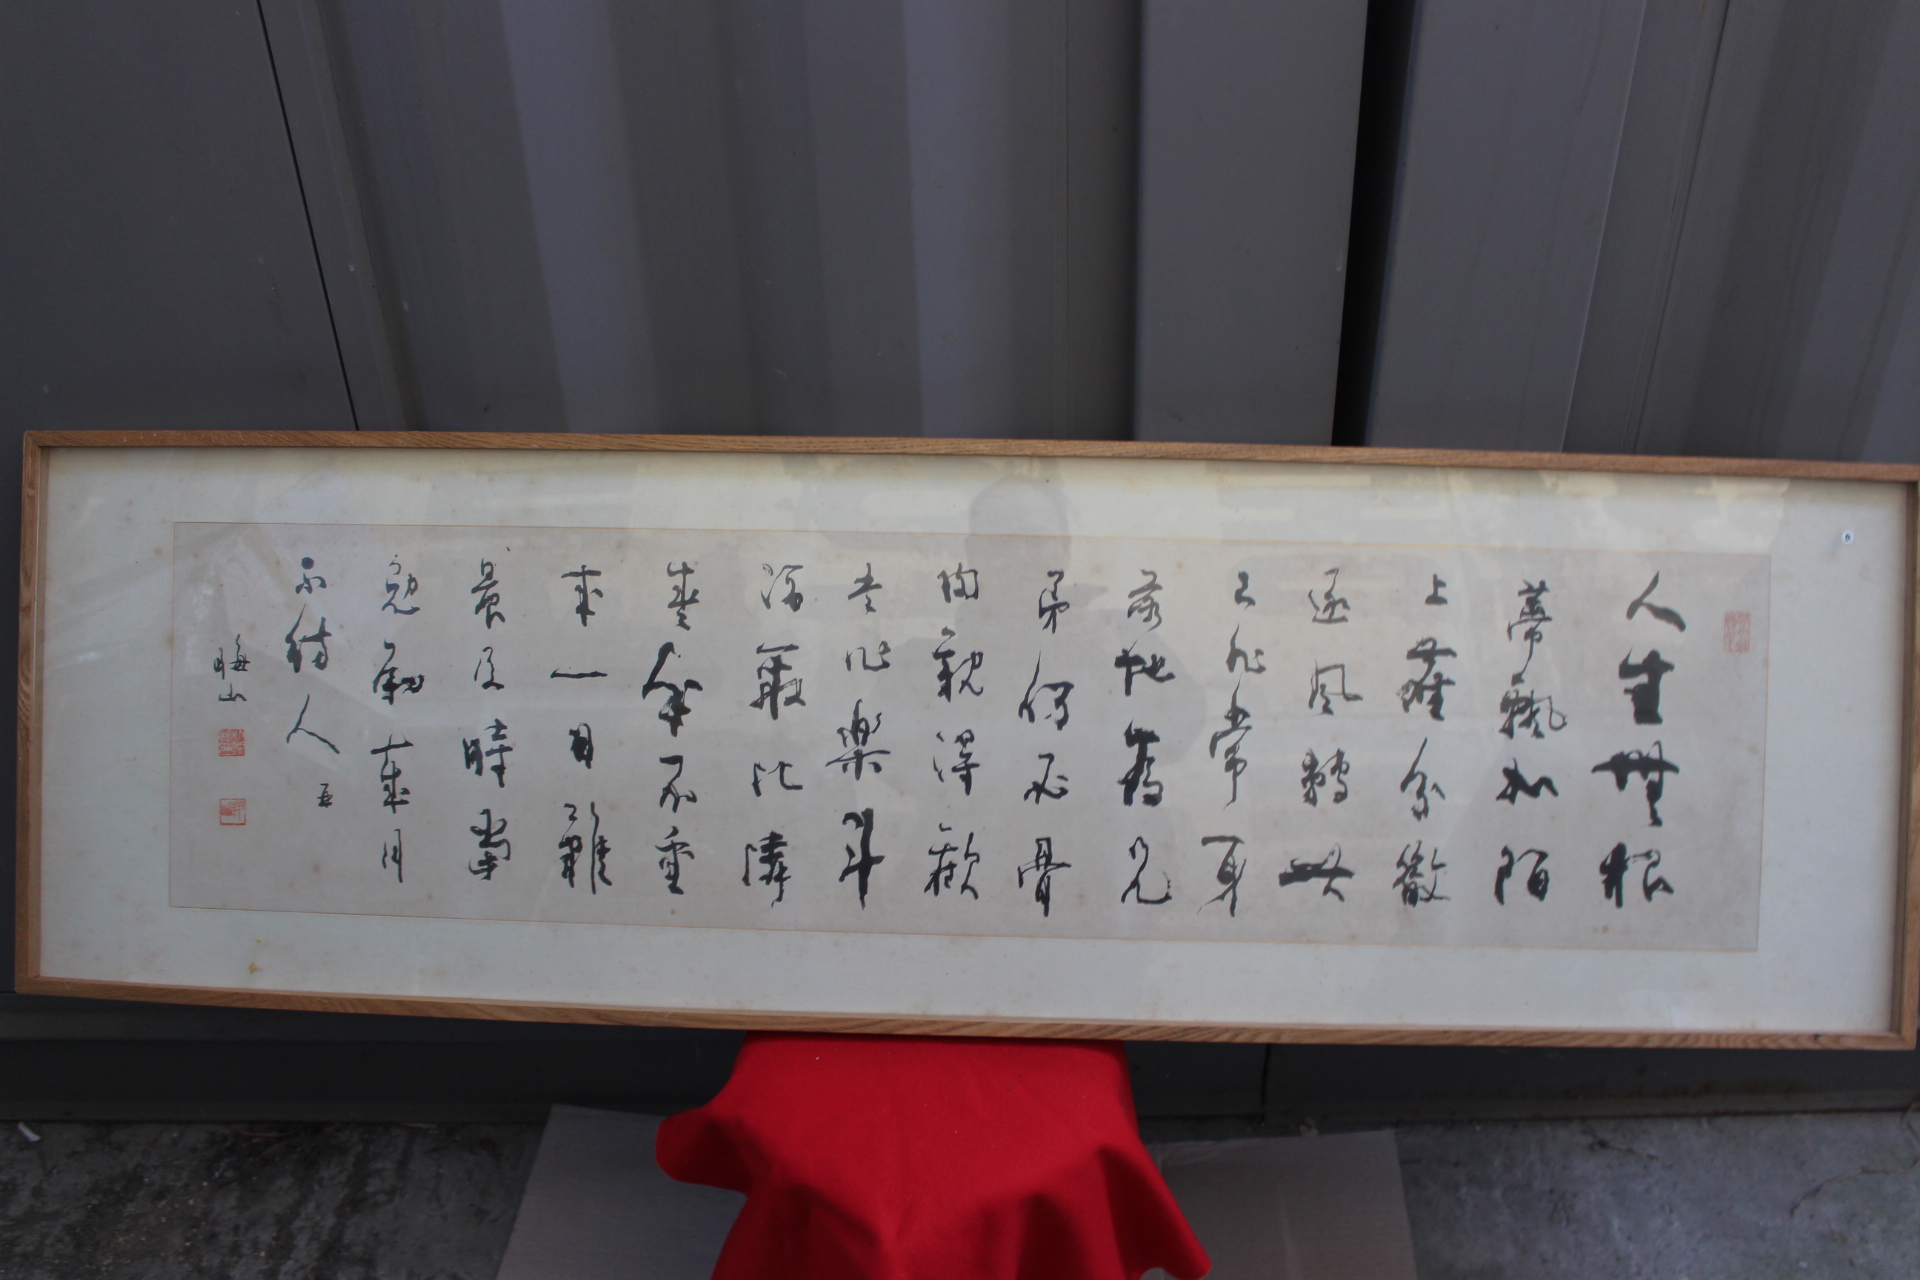 人生無根
蔕飄如陌
上塵分散
逐風轉此
已非常身
落地為兄
弟何必骨
肉親得歡
當作樂斗
酒聚比隣
盛年不重
来一日難
晨及時當
勉勵歳月
不待人 再
晦山